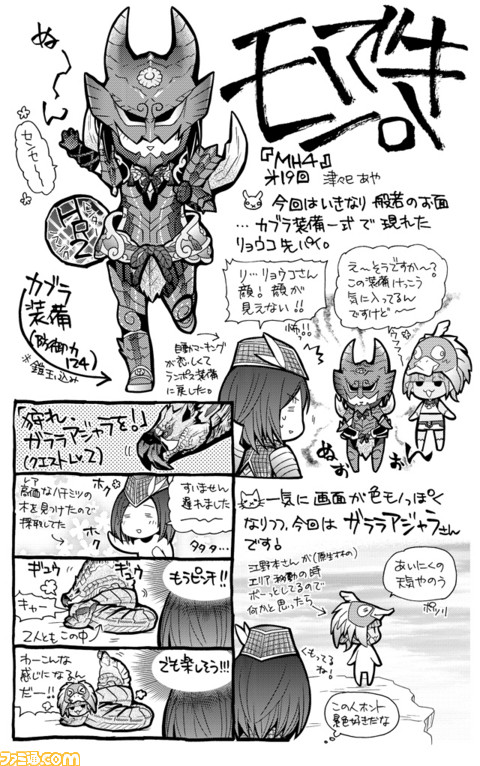 モンハン
『MH4』
第19回 津々巳あや
ぬ〜〜ん
センセ〜〜
HR2
カブラ
装備
(防御力
124)
※鎧玉込み
今回はいきなり般若のお面
…カブラ装備一式で現れた
リョウコ先パイ。
リ…リョウコさん
顔!顔が
見えない!!
怖!!
え〜そうですか〜?
この装備けっこう
気に入ってるん
ですけど〜
今フフ…
自動マーキング
が恋しくて
ランポス装備
に戻した。
ぬぉぉん
「狩れ、
ガララアジャラを!」
(クエストLv.2)
レア
高価なハチミツの
木を見つけたので
採取してた
ホク
ホク
すいません
遅れました
タタタ…
ギュウ
ギュウ
キャー
2人ともこの中
もうピンチ!!
わーこんな
感じになるん
だー!!
でも楽しそう!!!
一気に画面が色モノっぽく
なりつつ、今回はガララアジャラさん
です!
江野本さんが(原生すすめの)
エリア移動の時
ボーッとしてるので
何かと思ったら
あいにくの
天気やのう
ポツリ
くもってる
ね!
この人ホント
景色好きだな
ファミ通.com